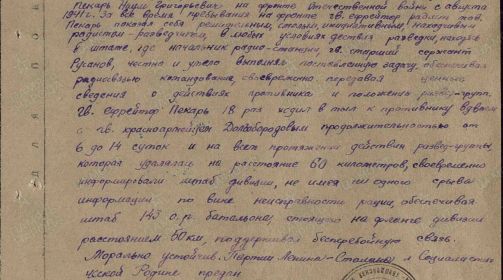 Пекарь Наум Григорьевич на фронте Отечественной войны с августа
1941 г. За всё время пребывания на фронте гв. ефрейтор радист тов.
Пекарь показал себя решительным, стойким, инициативным, находчивым
радистом-разведчиком, в любых условиях действия разведки, находясь
в штате, где начальник радио-станции, гв. старший сержант
Русанов, честно и умело выполнял поставленную задачу, обеспечивая
радиосвязью командование, своевременно передавая ценные
сведения о действиях противника и положении развед-групп.
Гв. Ефрейтор Пекарь 18 раз ходил в тыл к противнику вдвоем
с гв. красноармейцем Долгобородовым продолжительностью от
6 до 14 суток и на всем протяжении действий развед-группы,
которая удалялась на расстояние 60 километров, своевременно
информировали штаб дивизии, не имея ни одного срыва
информации по вине неисправности рации, обеспечивая
штаб 143 о.р. батальона, стоящего на фланге дивизии
расстоянием 60 км, поддерживал бесперебойную связь.
Морально устойчив. Партии Ленина-Сталина и Социалисти-
ческой Родине предан